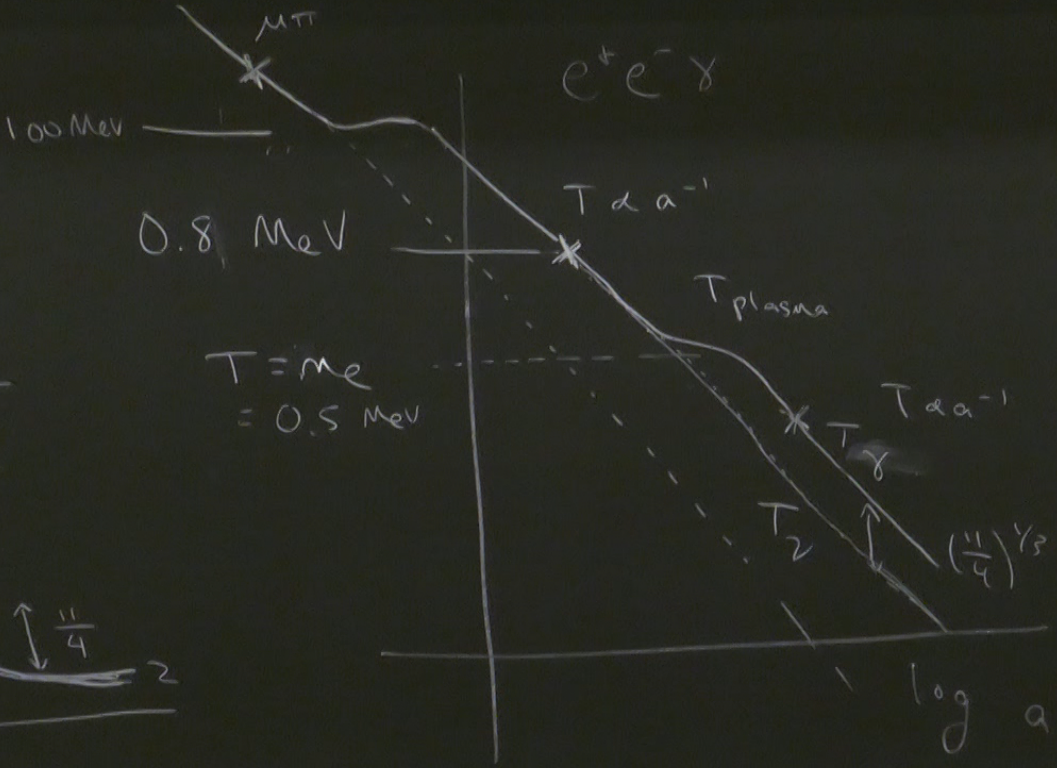 μπ
e⁺ e⁻ γ
100 MeV
T ∝ a⁻¹
0.8 MeV
T plasma
T = me
= 0.5 MeV
T ∝ a⁻¹
Tγ
T₂
(11/4)^1/3
11/4
2
log a